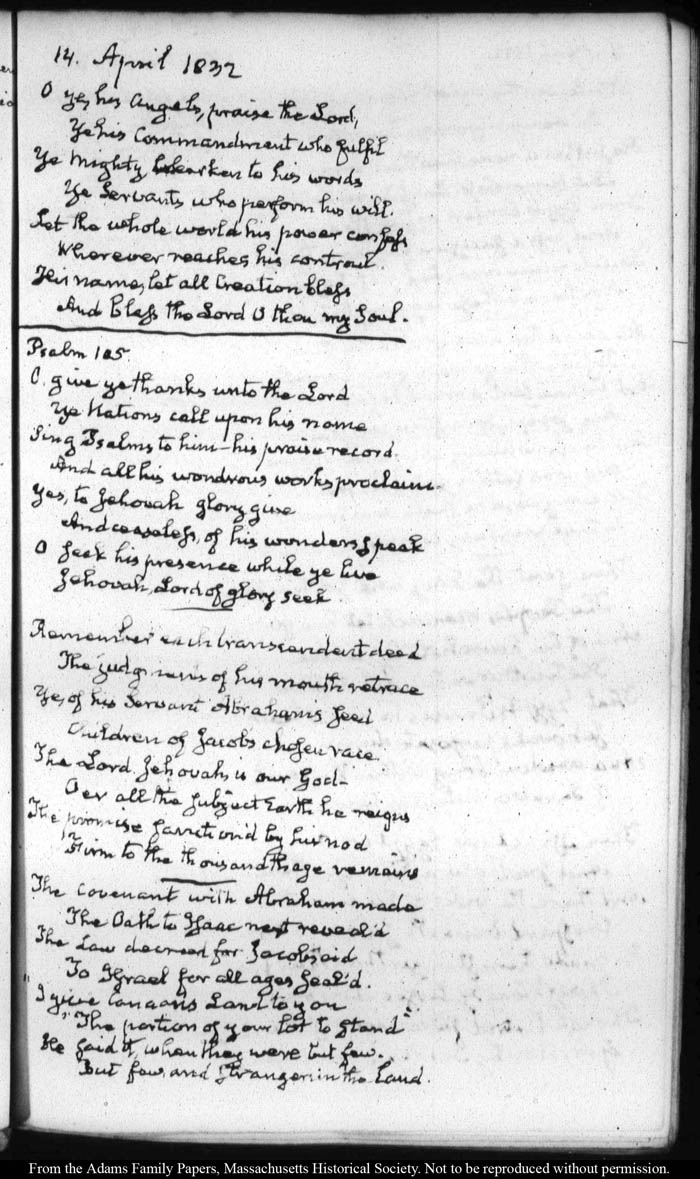 14. April 1832
O ye, his Angels, praise the Lord,
Ye his Commandment who fulfil
Ye Mighty hearken to his words
Ye Servants who perform his will.
Let the whole world his power confess
Wherever reaches his controul.
His name, let all Creation bless
And bless the Lord O thou my Soul.
Psalm 105
O. give ye thanks unto the Lord
Ye Nations call upon his name
Sing Psalms to him—his praise record.
And all his wondrous works proclaim
Yes, to Jehovah glory give
And ceaseless, of his wonders speak
O seek his presence while ye live
Jehovah, Lord of glory seek.
Remember each transcendent deed
The judgments of his mouth retrace
Ye, of his Servant Abraham's seed
Children of Jacobs chosen race.
The Lord Jehovah, is our God—
Oer all the subject Earth he reigns
The promise sanction'd by his nod
Firm to the thousandth age remains
The Covenant with Abraham made
The Oath to Isaac next reveal'd
The Law decreed for Jacobs aid
To Israel for all ages seal'd.
"I give Canaan's Land to you
"The portion of your lot to stand"
He said it, when they were but few.
But few, and Strangers in the Land.
From the Adams Family Papers, Massachusetts Historical Society. Not to be reproduced without permission.